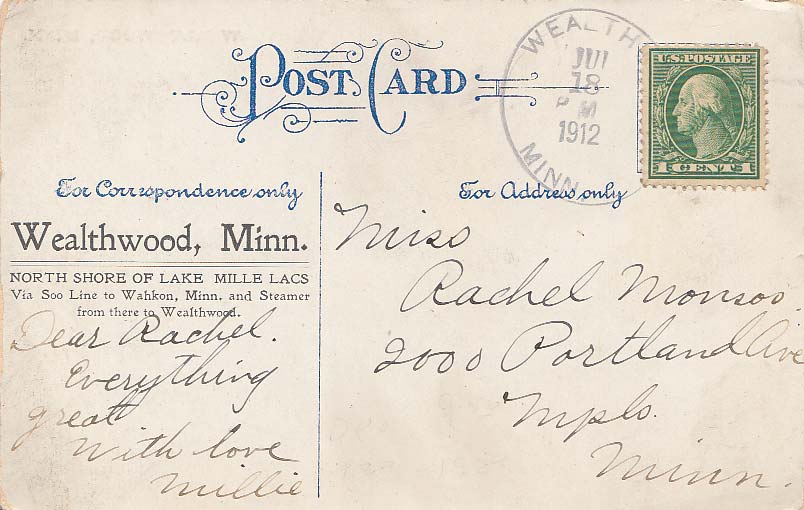 POST CARD
WEALTH
JUL
18
P M
1912
MINN
U.S. POSTAGE
1 CENT 1
For Correspondence only
For Address only
Wealthwood, Minn.
NORTH SHORE OF LAKE MILLE LACS
Via Soo Line to Wahkon, Minn. and Steamer
from there to Wealthwood.
Dear Rachel.
Everything
great
With love
Millie
Miss
Rachel Monson
2000 Portland Ave
Mpls.
Minn.